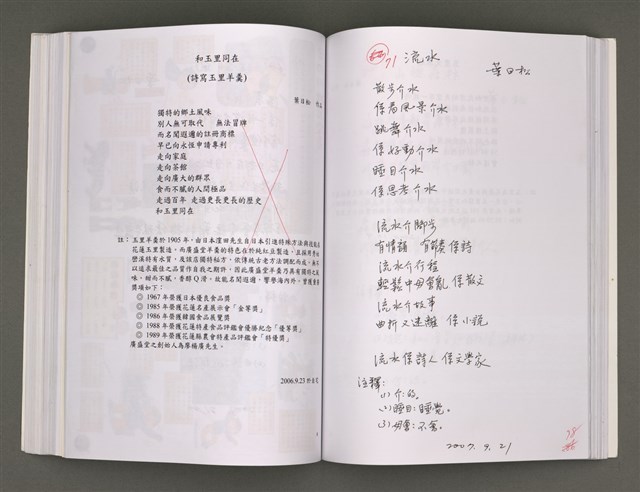 和玉里同在
(詩寫玉里羊羹)
葉日松
獨特的鄉土風味
別人無可取代 無法冒牌
而名聞遐邇的註冊商標
早已向永恆申請專利
走向家庭
走向茶館
走向廣大的群眾
食而不膩的人間極品
走過百年 走過更長更長的歷史
和玉里同在
註：玉里羊羹於1905年，由日本濱田先生自日本引進特殊方法與技術在
花蓮玉里製造。而廣盛堂羊羹的特色在於純紅豆製造，且採用
味，甜而不膩，香醇Q滑，故能名聞遐邇，響譽海內外，曾獲重要
獎項如下：
◎ 1967年榮獲日本優良食品獎
◎ 1985年榮獲花蓮名產展示會「金等獎」
◎ 1986年榮獲韓國食品展覽獎
◎ 1988年榮獲花蓮特產食品評鑑會優勝紀念「優等獎」
◎ 1989年榮獲花蓮縣農會特產品評鑑會「特優獎」
廣盛堂之創始人為廖橋廣先生。
2006.9.23
71 流水
葉日松
散步介水
係看風景介水
跳舞介水
係好動介水
睡目介水
係思考介水
流水介腳步
有情誦 有節奏係詩
流水介行程
輕鬆中毋會亂 係散文
流水介故事
曲折又迷離 係小說
流水係詩人 係文學家
注釋：
(1)介：的。
(2)睡目：睡覺。
(3)毋會：不會。
2007.9.21